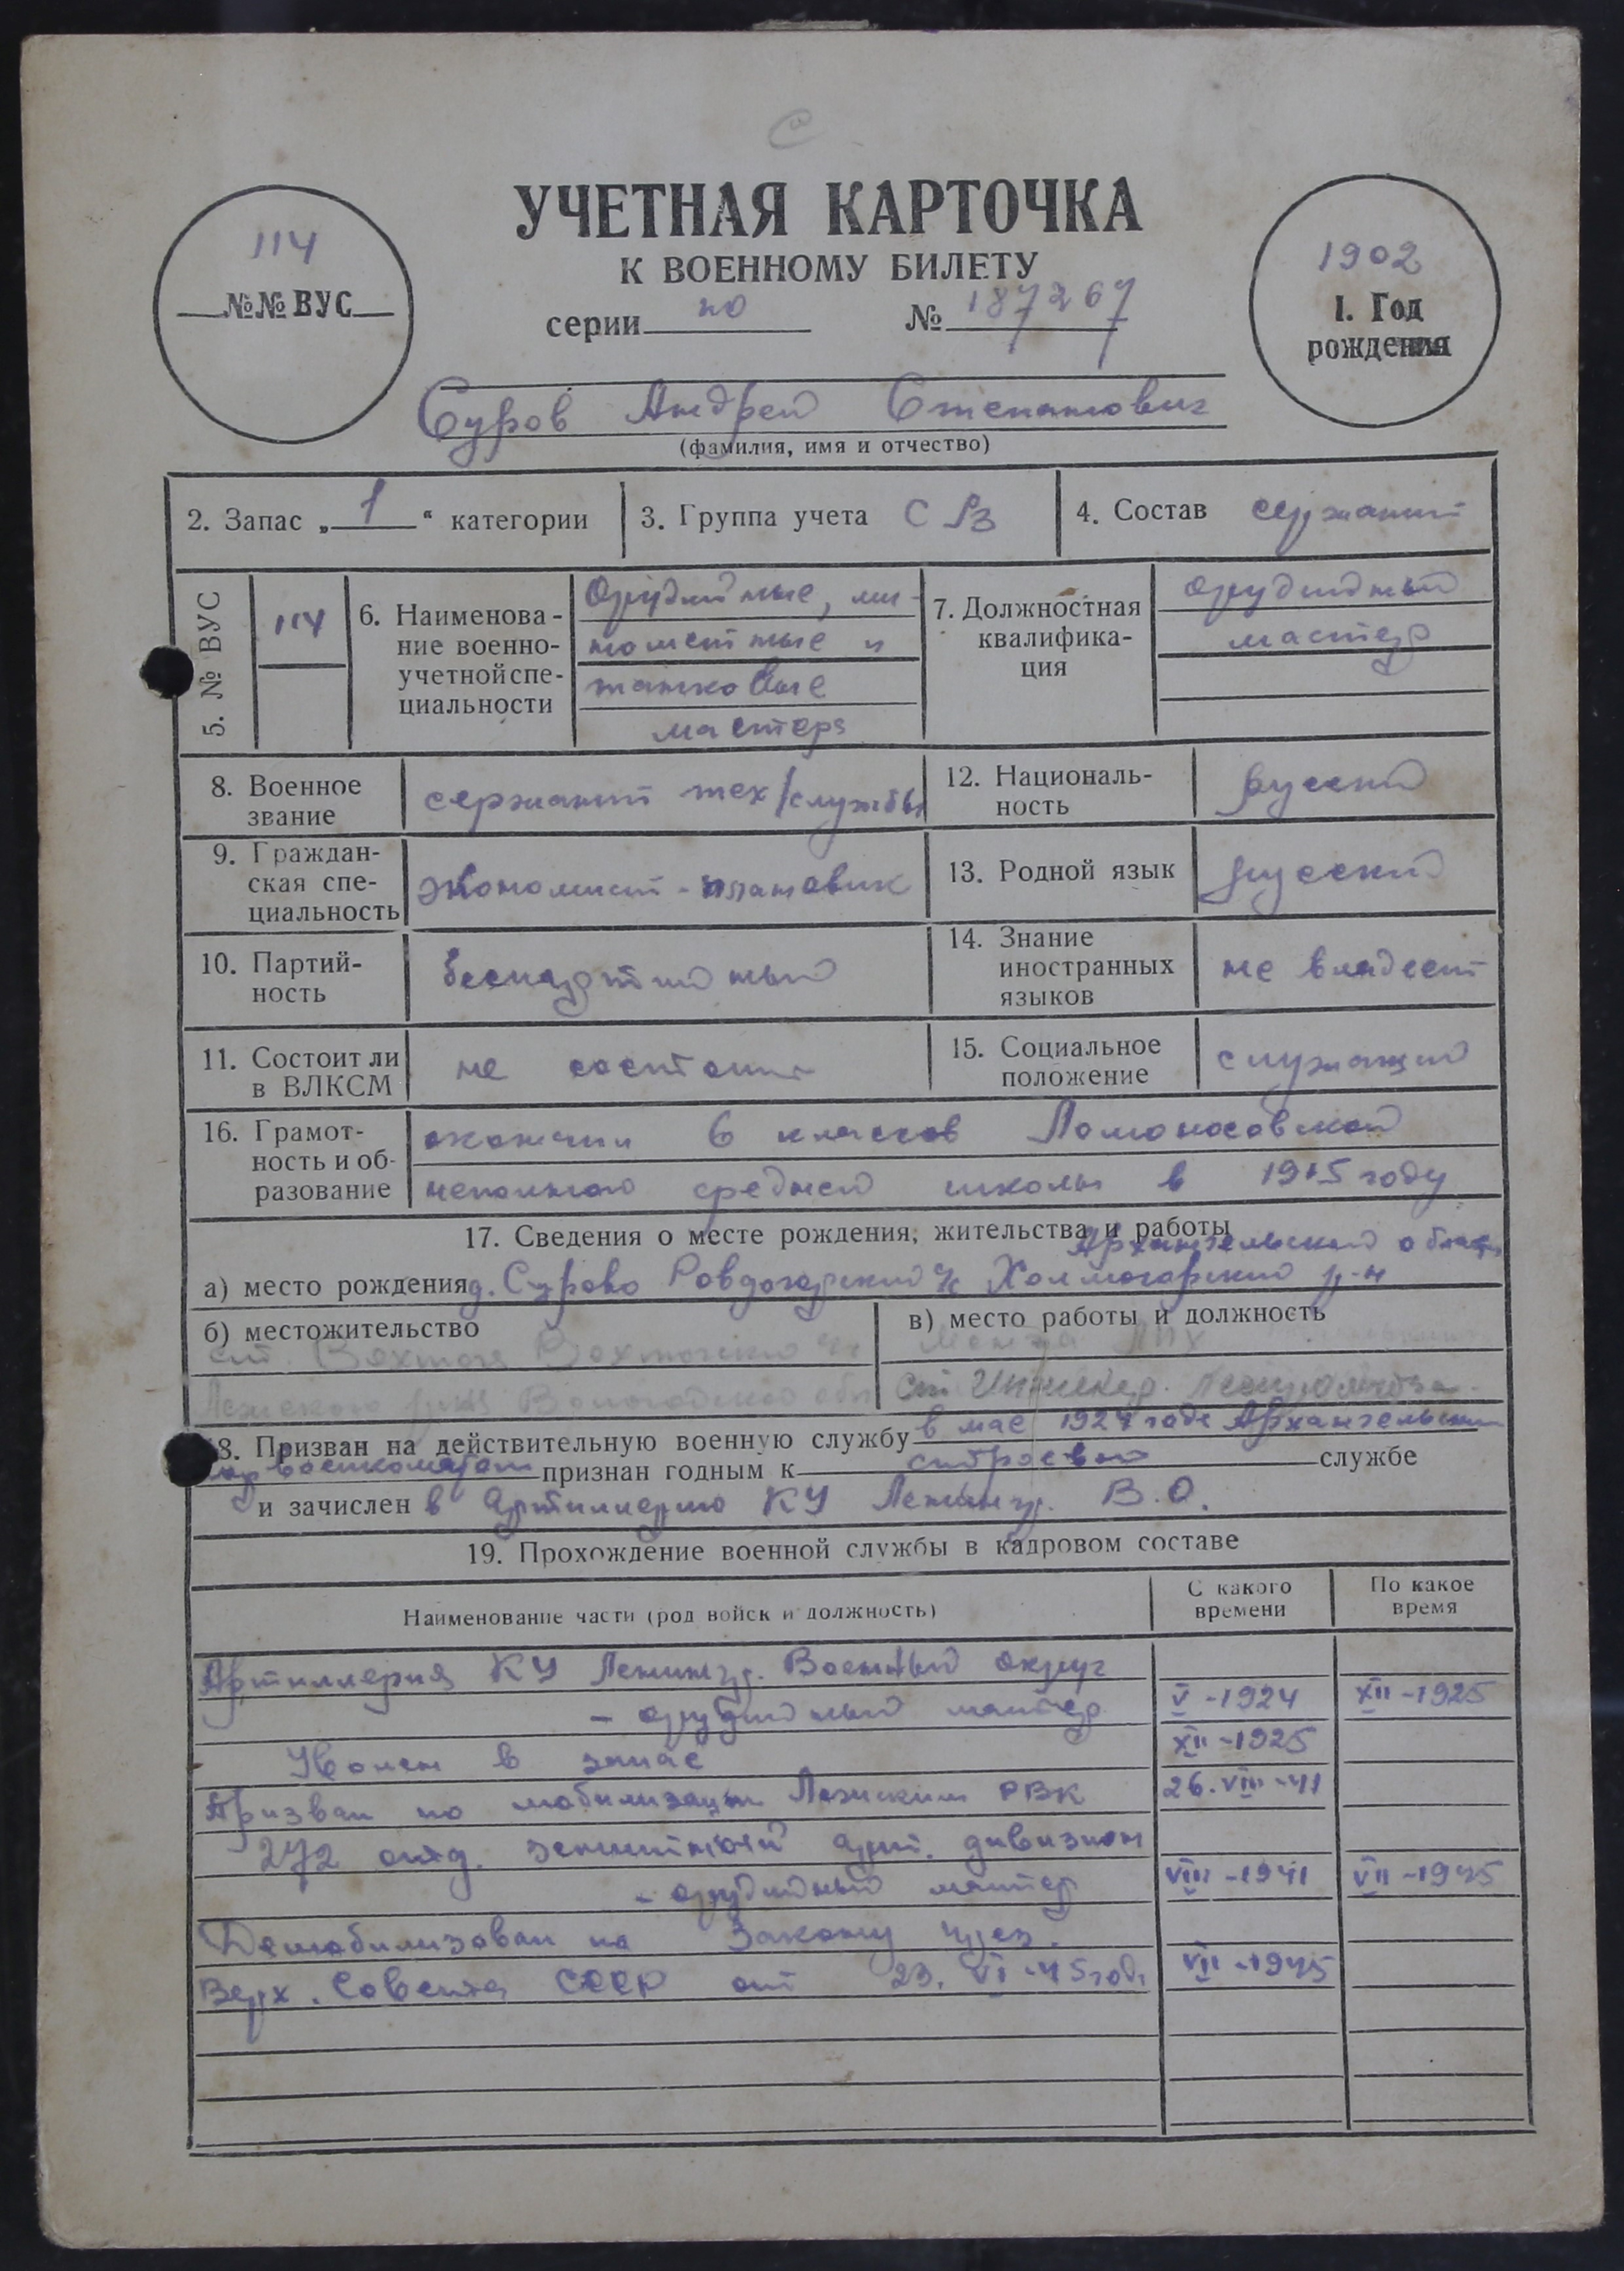 114
№№ ВУС
УЧЕТНАЯ КАРТОЧКА
К ВОЕННОМУ БИЛЕТУ
серии но № 187267
1902
1. Год
рождения
Суров Андрей Степанович
(фамилия, имя и отчество)
2. Запас „1“ категории
3. Группа учета СА3
4. Состав сержант
5. № ВУС
114
6. Наименова-
ние военно-
учетной спе-
циальности
Орудийные, ми-
нометные и
танковые
мастера
7. Должностная
квалифика-
ция
орудийный
мастер
8. Военное
звание
сержант тех/службы
12. Националь-
ность
русский
9. Граждан-
ская спе-
циальность
экономист-плановик
13. Родной язык
русский
10. Партий-
ность
беспартийный
14. Знание
иностранных
языков
не владеет
11. Состоит ли
в ВЛКСМ
не состоит
15. Социальное
положение
служащий
16. Грамот-
ность и об-
разование
окончил 6 классов Ломоносовской
неполной средней школы в 1915 году
17. Сведения о месте рождения, жительства и работы
Архангельской област
а) место рождения д. Сурово Ровдогорский с/с Холмогорский р-н
б) местожительство
ст. Вохтога Вохтожского
Лежского р-на Вологодской обл
в) место работы и должность
Монза ЛПХ
Ст Инженер.
18. Призван на действительную военную службу в мае 1924 годе Архангельским
военкоматом признан годным к строевой службе
и зачислен в артиллерию КУ Ленингр. В.О.
19. Прохождение военной службы в кадровом составе
Наименование части (род войск и должность)
С какого
времени
По какое
время
Артиллерия КУ Ленингр. Военный округ
- орудийный мастер V-1924 XII-1925
Уволен в запас XII-1925
Призван по мобилизации Лежским РВК 26.VIII-41
272 отд. зенитной арт. дивизион
- орудийный мастер VIII-1941 VII-1945
Демобилизован по Закону през.
Верх. Совета СССР от 23.VI-45 года VII-1945